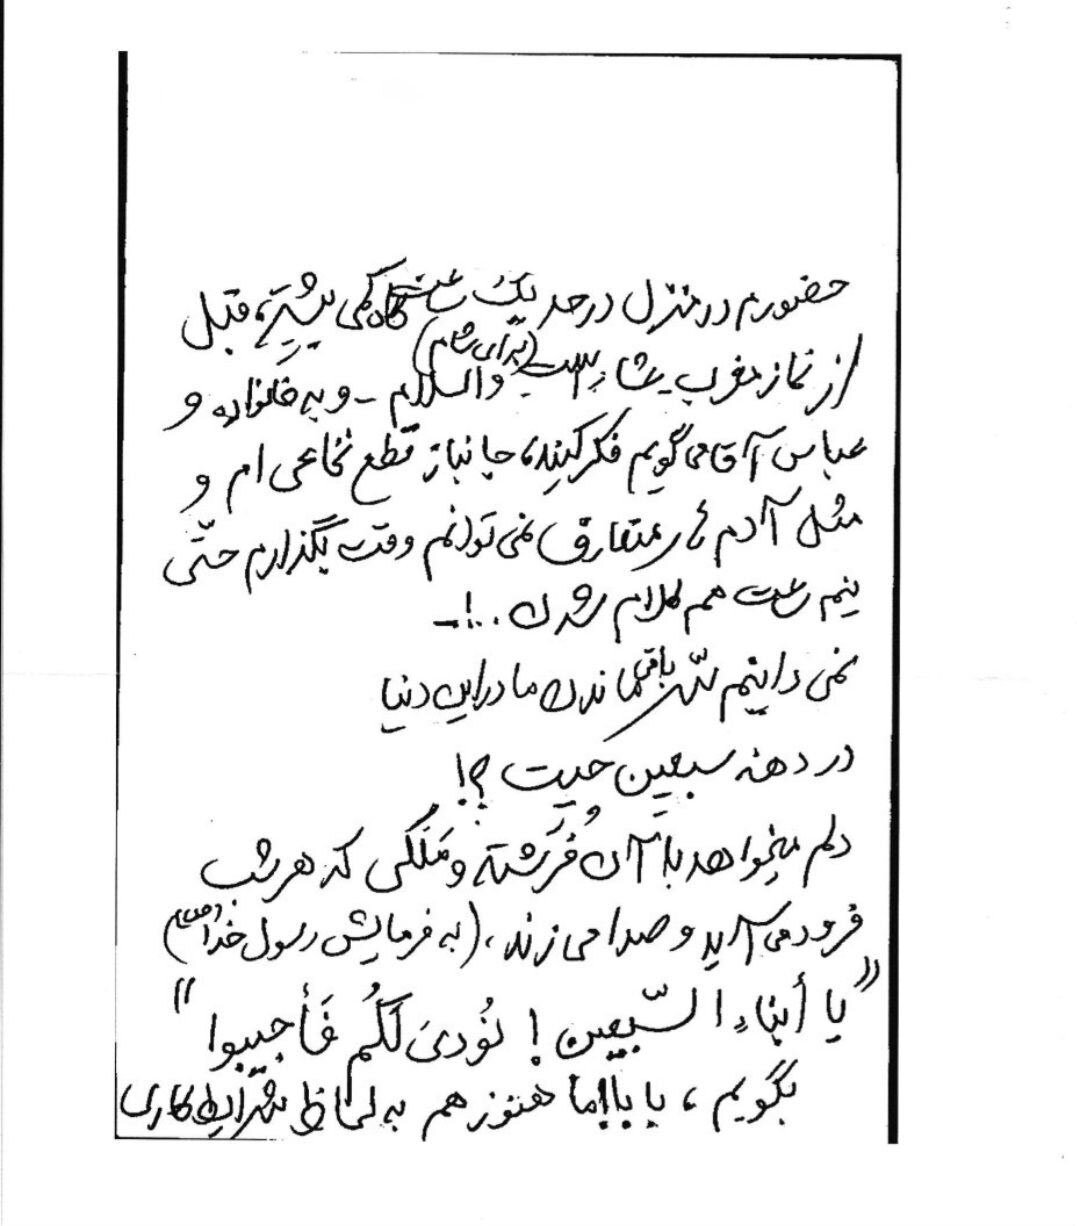 حضورم در منزل در حد یک ساعت گاه کمی بیشتر، قبل
از نماز مغرب عشاء است (برای شام) والسلام - و به خانواده و
عباس آقا می گویم فکر کنید، جانباز قطع نخاعی ام و
مثل آدم های متعارف نمی توانم وقت بگذارم حتّی
نیم ساعت هم کلام شدن ..!-
نمی دانیم سّر باقی ماندن ما در این دنیا
در دهه سبعین چیست ؟!
دلم میخواهد با آن فُرشته و مَلَکی که هر شب
فرود می آید و صدا می زند، (به فرمایش رسول خدا (ص))
"یا أبناءِ السّبعین ! نُودیَ لَکُم فَأجیبوا"
بگویم، بابا اما هنوز هم به لحاظ شرایط کاری